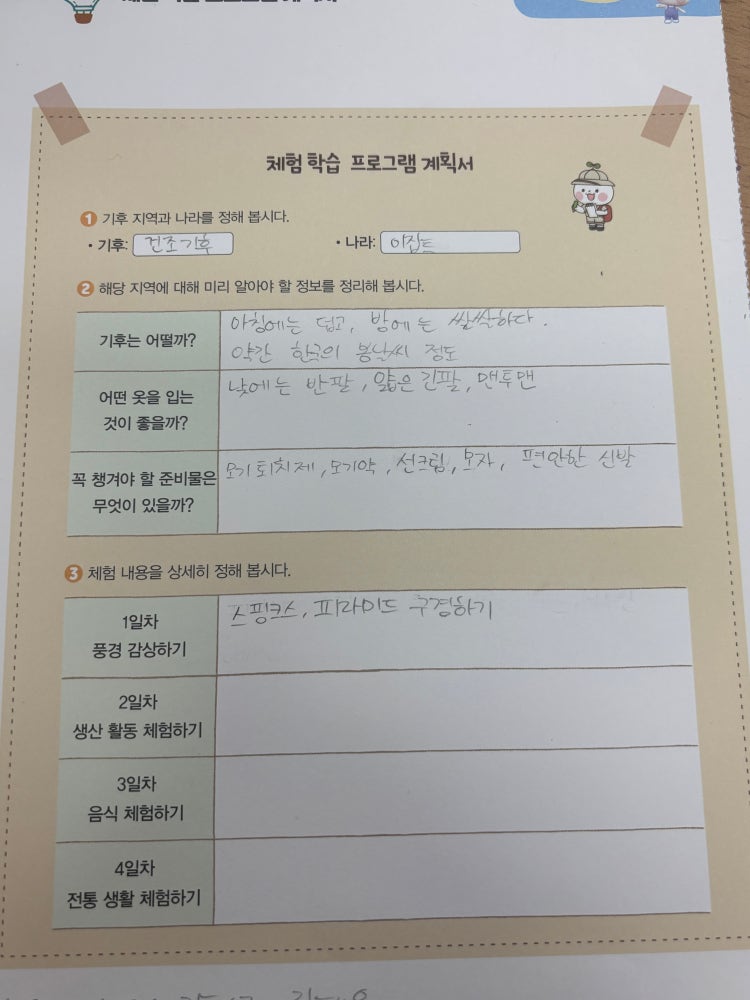 체험 학습 프로그램 계획서
1 기후 지역과 나라를 정해 봅시다.
• 기후: 건조기후 • 나라: 이집트
2 해당 지역에 대해 미리 알아야 할 정보를 정리해 봅시다.
기후는 어떨까?
아침에는 덥고, 밤에는 쌀쌀하다.
약간 한국의 봄날씨 정도
어떤 옷을 입는
것이 좋을까?
낮에는 반팔, 얇은 긴팔, 맨투맨
꼭 챙겨야 할 준비물은
무엇이 있을까?
모기퇴치제, 모기약, 선크림, 모자, 편안한 신발
3 체험 내용을 상세히 정해 봅시다.
1일차
풍경 감상하기
스핑크스, 피라미드 구경하기
2일차
생산 활동 체험하기
3일차
음식 체험하기
4일차
전통 생활 체험하기